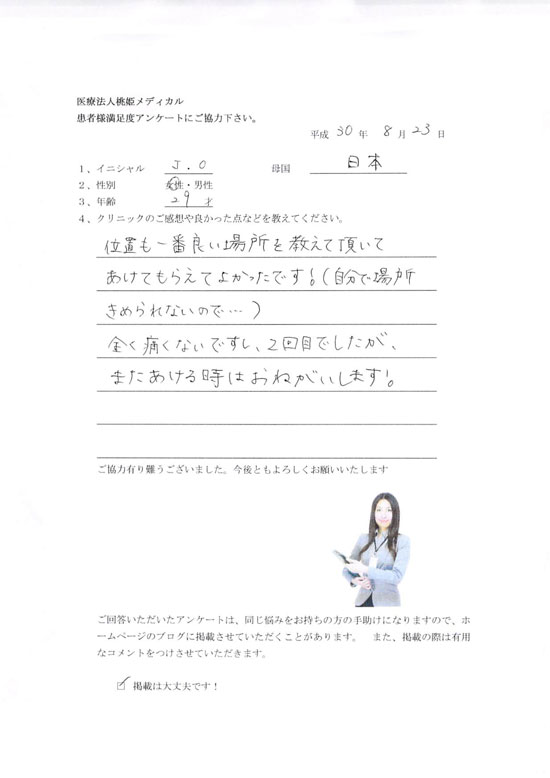 医療法人桃姫メディカル
患者様満足度アンケートにご協力下さい。
平成 30 年 8 月 23 日
1、イニシャル J.O 母国 日本
2、性別 女性・男性
3、年齢 29 才
4、クリニックのご感想や良かった点などを教えてください。
位置も一番良い場所を教えて頂いて
あけてもらえてよかったです!(自分で場所
きめられないので…)
全く痛くないですし、2回目でしたが、
またあける時はおねがいします!
ご協力有り難うございました。今後ともよろしくお願いいたします
ご回答いただいたアンケートは、同じ悩みをお持ちの方の手助けになりますので、ホ
ームページのブログに掲載させていただくことがあります。 また、掲載の際は有用
なコメントをつけさせていただきます。
☑ 掲載は大丈夫です!